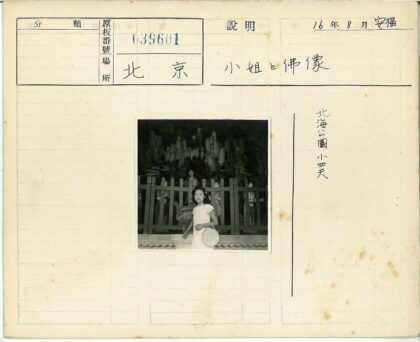 分類
原板番號
039601
場所
北京
説明
16年8月 安福
小姐と佛像
北海公園小西天